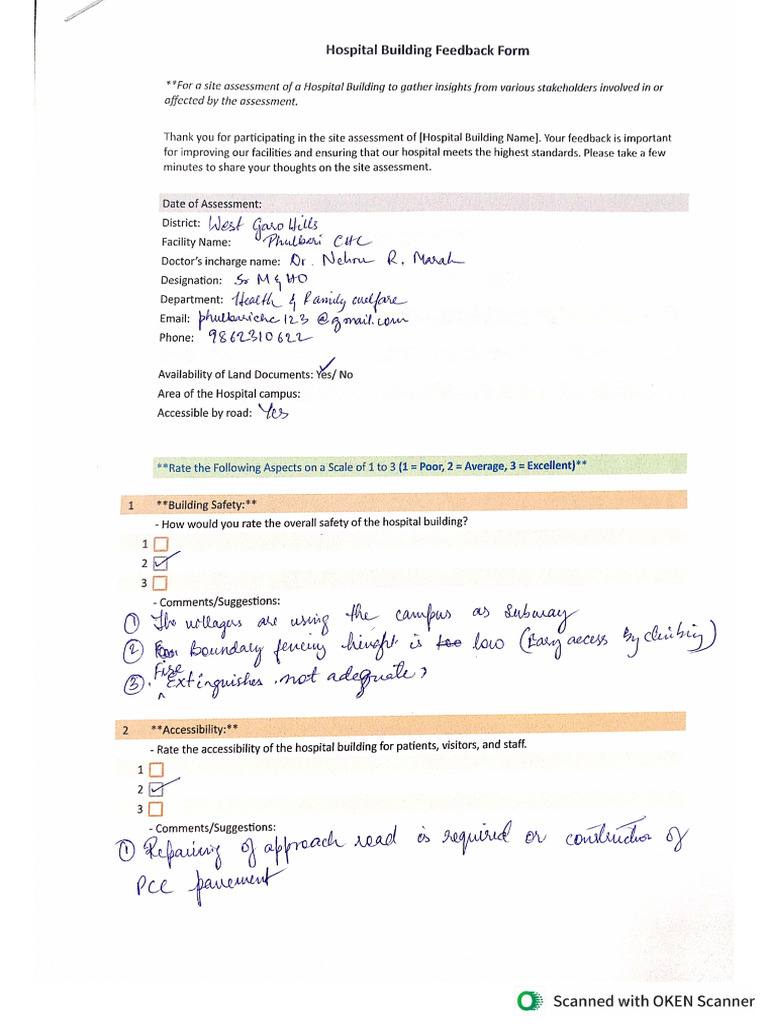 Hospital Building Feedback Form
**For a site assessment of a Hospital Building to gather insights from various stakeholders involved in or
affected by the assessment.
Thank you for participating in the site assessment of [Hospital Building Name]. Your feedback is important
for improving our facilities and ensuring that our hospital meets the highest standards. Please take a few
minutes to share your thoughts on the site assessment.
Date of Assessment:
District: West Garo Hills
Facility Name: Phulbari CHC
Doctor's incharge name: Dr. Nehru R. Marak
Designation: Sr M & HO
Department: Health & Family welfare
Email: phulbarichc123@gmail.com
Phone: 9862310622
Availability of Land Documents: Yes/ No
Area of the Hospital campus:
Accessible by road: Yes
**Rate the Following Aspects on a Scale of 1 to 3 (1 = Poor, 2 = Average, 3 = Excellent)**
1 **Building Safety:**
- How would you rate the overall safety of the hospital building?
1
2
3
- Comments/Suggestions:
① The villagers are using the campus as subway
② Boundary fencing hieght is low (Easy access by climbing)
③. Fire Extinguishes not adequate,
2 **Accessibility:**
- Rate the accessibility of the hospital building for patients, visitors, and staff.
1
2
3
- Comments/Suggestions:
① Repairing of approach road is required or construction of
PCC pavement
Scanned with OKEN Scanner